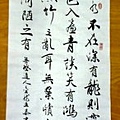 水不在深有龍則
色入簾青談笑有鴻
竹之亂耳無案牘
何陋之有